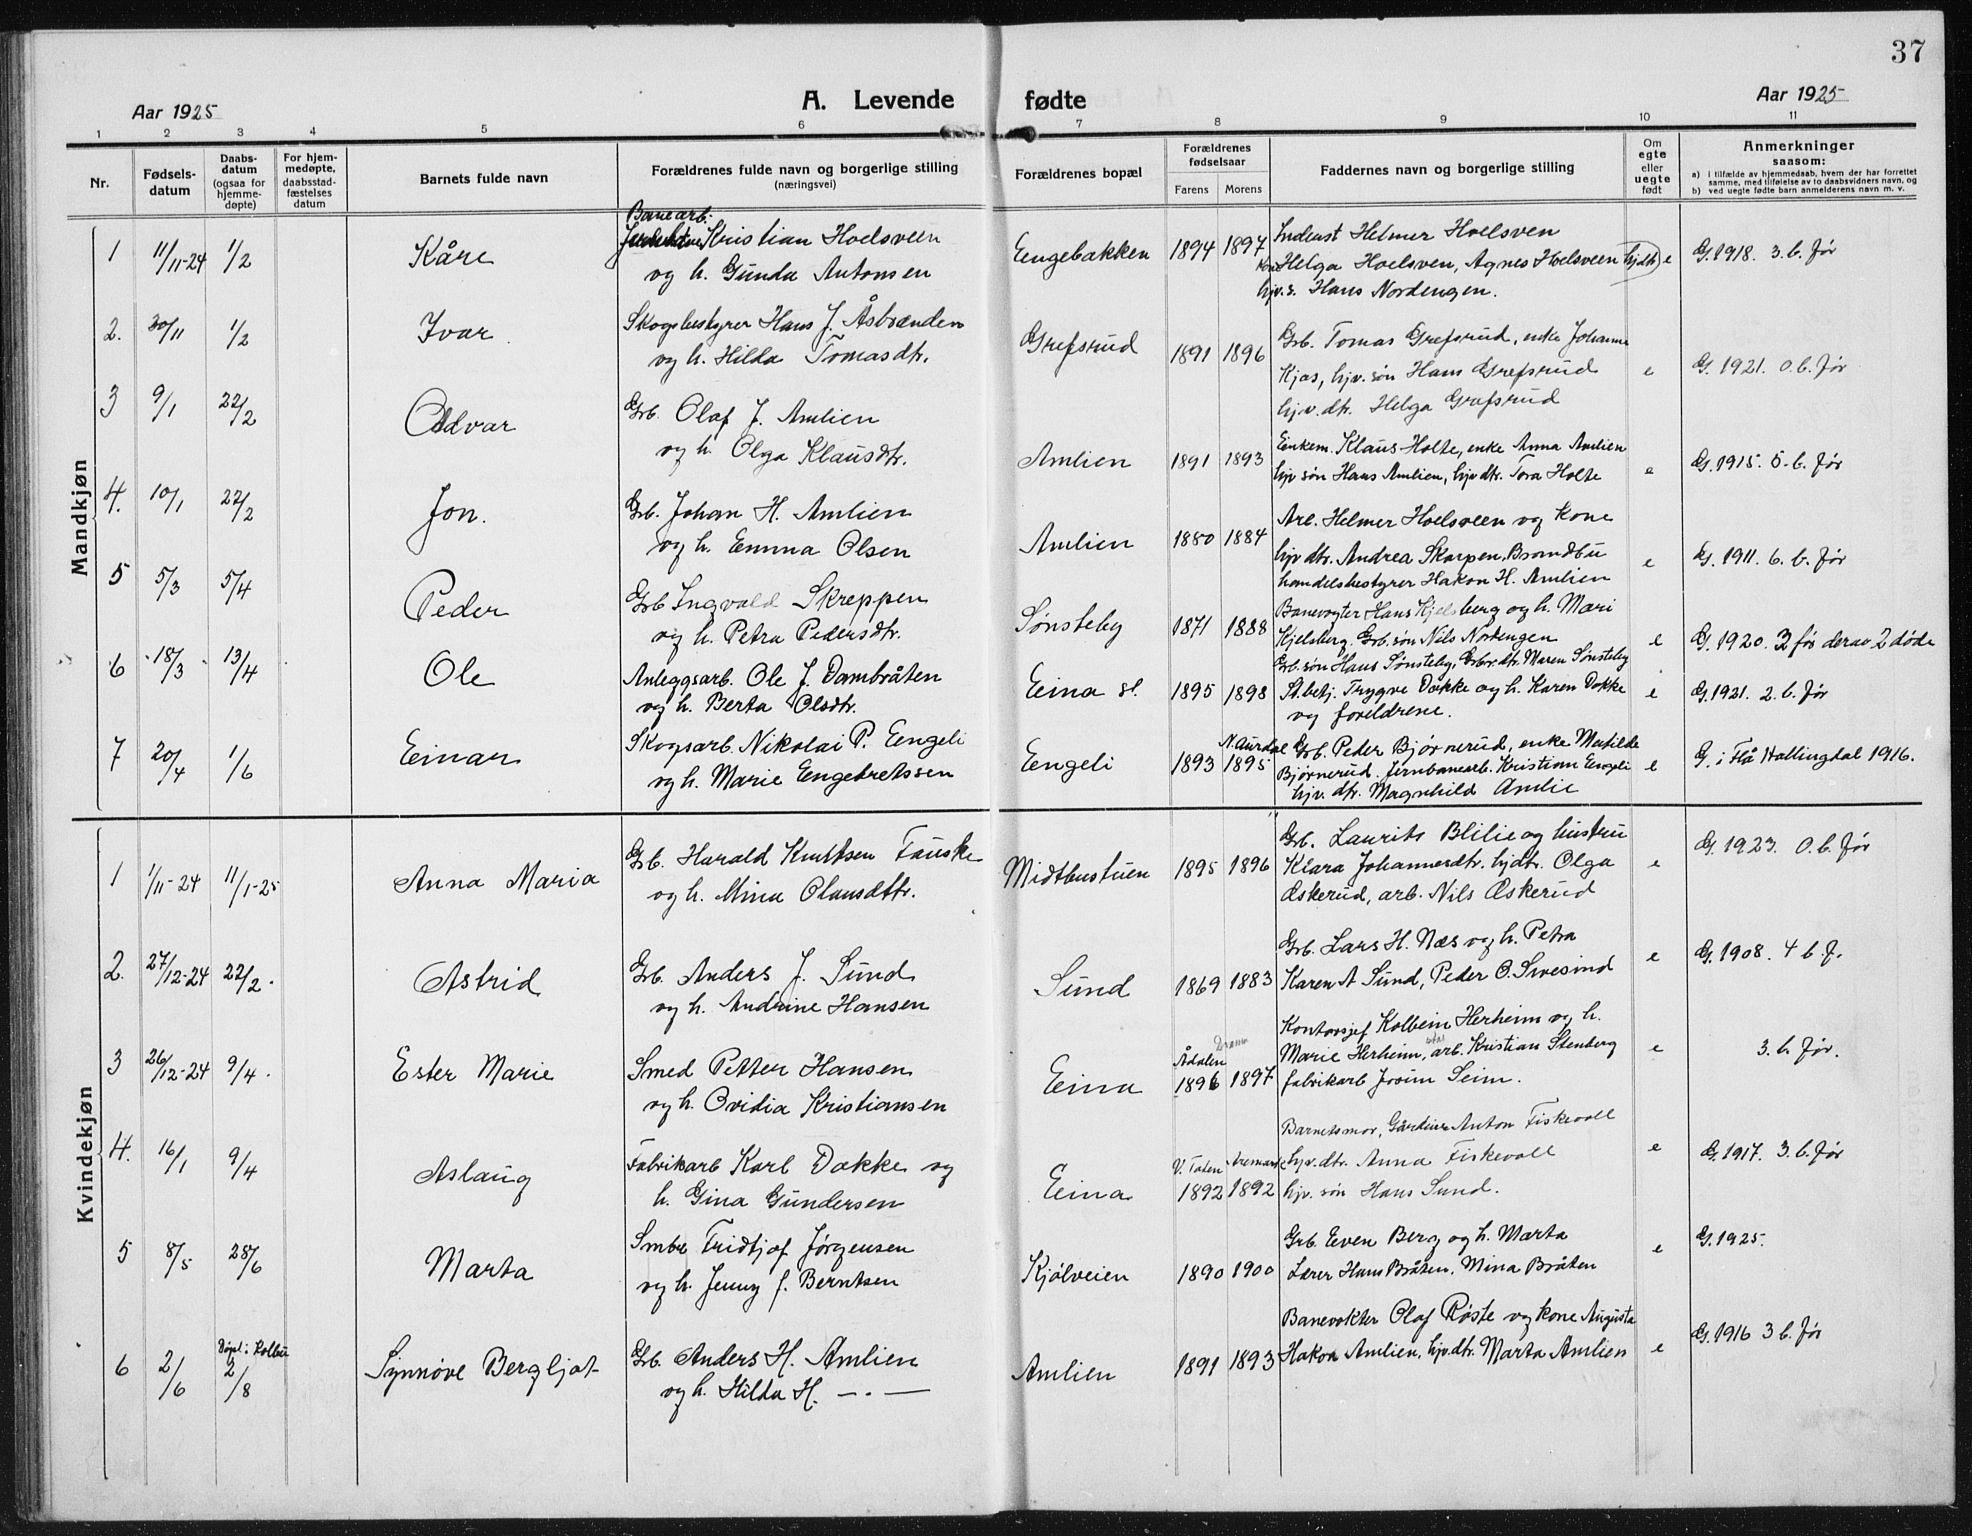 37
Aar 1925
A. Levende fødte
Aar 1925
1 2 3 4 5 6 7 8 9 10 11
Nr.
Fødsels-
datum
Daabs-
datum
(ogsaa for
hjemme-
døpte)
For hjem-
medøpte,
daabsstad-
fæstelses
datum
Barnets fulde navn
Forældrenes fulde navn og borgerlige stilling
(næringsvei)
Forældrenes bopæl
Forældrenes
fødselsaar
Farens Morens
Faddernes navn og borgerlige stilling
Om
egte
eller
uegte
født
Anmerkninger
saasom:
a) i tilfælde av hjemmedaab, hvem der har forrettet
samme, med tilføielse av to daabsvidners navn, og
b) ved uegte fødte barn anmelderens navn m. v.
Mandkjøn
Banearb.
1 11/11-24 1/2 Kåre Kristian Hoelsveen Eengebakken 1894 1897 Helmer Hoelsven
og h. Gunda Antonsen
Helga Hoelsven, Agnes Hoelsveen hjdtr e G. 1918. 3. b. før
hjv. s. Hans Nordengen.
2. 30/11 1/2 Ivar Skogsbestyrer Hans J. Åsbrænden Grefsrud 1891 1896 Grb. Tomas Grefsrud, enke Johanne
og h. Hilda Tomasdtr.
Kjos, hjv. søn Hans Grefsrud e G. 1921. 0. b. før
hjv. dtr. Helga Grefsrud
3 9/1 22/2 Odvar Grb. Olaf J. Amlien Amlien 1891 1893 Enkem. Klaus Holte, enke Anna Amlien
og h. Olga Klausdtr.
hjv søn Hans Amlien, hjv dtr. Tora Holte e G. 1915. 5. b. før
4. 10/1 22/2 Jon. Grb. Johan H. Amlien Amlien 1880 1884 Arb. Helmer Hoelsveen og kone
og h. Emma Olsen
hjv dtr. Andrea Skarpen, Brandbu e G. 1911. 6. b. før
handelsbestyrer Hakon H. Amlien
5 5/3 5/4 Peder Grb Ingvald Skreppen Sønsteby 1871 1888 Banevogter Hans Kjelsberg og h. Mari
og h. Petra Pedersdtr.
Kjelsberg, Grb. søn Nils Nordengen e G. 1920. 3 før derav 2 døde
Grb. søn Hans Sønsteby, Grb. dtr. Maren Sønsteby
6 18/3 13/4 Ole Anleggsarb. Ole J. Dambråten Eina st. 1895 1898 St. betj. Trygve Dokke og h. Karen Dokke e G. 1921. 2. b. før
og h. Berta Olsdtr.
og foreldrene.
7 20/4 1/6 Einar Skogsarb. Nikolai P. Eengeli Eengeli 1893 N. Aurdal 1895 Grb. Peder Bjørnerud, enke Matilde
og h. Marie Engebretssen
Bjørnerud. Jernbanearb. Kristian Eengeli e G. i Flå Hallingdal 1916.
hjv. dtr. Magnhild Amlie
Kvindekjøn
1 1/11-24 11/1-25 Anna Maria Grb. Harald Knutsen Fauske Midtbustuen 1895 1896 Grb. Laurits Blilie og hustru
og h. Mina Olausdtr.
Klara Johannesdtr. hjdtr. Olga e G. 1923. 0. b. før
Æskerud, arb. Nils Æskerud
2. 27/12-24 22/2. Astrid Grb. Anders J. Sund Sund 1869 1883 Grb. Lars H. Næs og h. Petra
og h. Andrine Hansen
Karen A Sund, Peder O. Svesind e G. 1908. 4 b. f.
3 26/12-24 9/4. Ester Marie Smed Petter Hansen Eina Ådalen 1896 Dramn 1897 Kontorsjef Kolbein Herheim og h.
og h. Ovidia Kristiansen
Marie Herheim, arb. Kristian Stenberg e 3. b. før.
fabrikarb Seim.
4. 16/1 9/4 Aslaug Fabrikarb Karl Dokke og Eina V. Toten 1892 Aremark 1892 Barnetsmor, Gårdeier Anton Fiskevoll
h. Gina Gundersen
hjv. dtr. Anna Fiskevoll e G. 1917. 3. b. før
hjv. søn Hans Sund.
5 8/5 28/6 Marta Smbr Fridtjof Jørgensen Kjølveien 1890 1900 Grb. Even Berg og h. Marta
og h. Jenny J. Berntsen
Lærer Hans Bråten, Mina Bråten e G. 1925.
6 2/6 Døpt i Kolbu 2/8 Synnøve Bergljot Grb. Anders H. Amlien Amlien 1891 1893 Banevokter Olaf Røste og kone Augusta
og h. Hilda H. —.—
Hakon Amlien, hjv.dtr. Marta Amlien e G. 1916 3 b. før